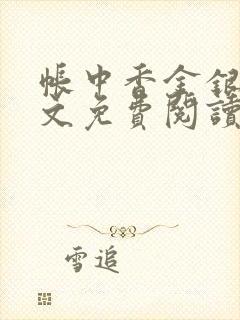 帳中香金銀
文免費閱讀
雪追